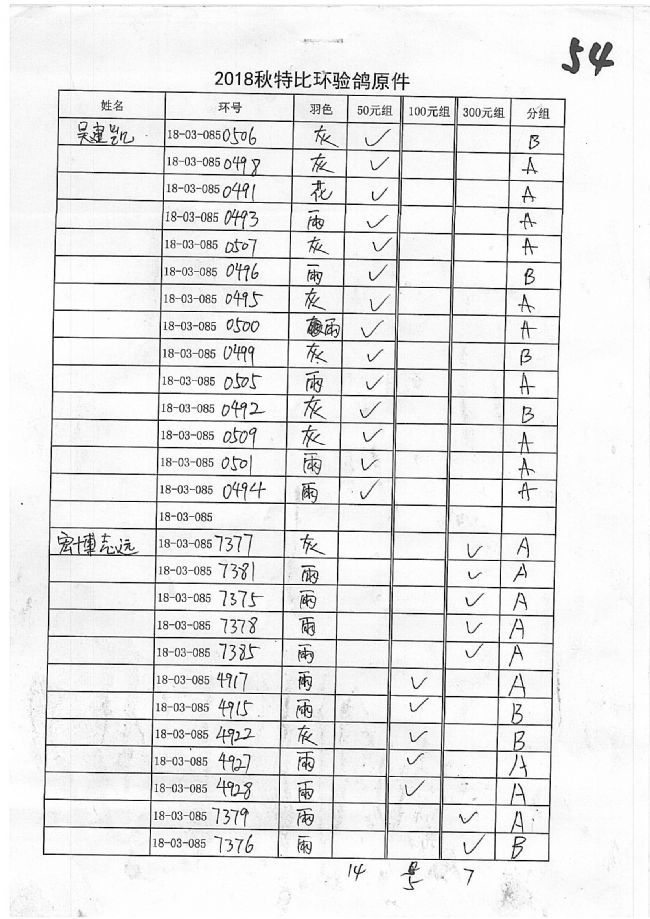 54
2018秋特比环验鸽原件
姓名 环号 羽色 50元组 100元组 300元组 分组
吴建凯 18-03-085 0506 灰 ✓ B
18-03-085 0498 灰 ✓ A
18-03-085 0491 花 ✓ A
18-03-085 0493 雨 ✓ A
18-03-085 0507 灰 ✓ A
18-03-085 0496 雨 ✓ B
18-03-085 0495 灰 ✓ A
18-03-085 0500 雨 ✓ A
18-03-085 0499 灰 ✓ B
18-03-085 0505 雨 ✓ A
18-03-085 0492 灰 ✓ B
18-03-085 0509 灰 ✓ A
18-03-085 0501 雨 ✓ A
18-03-085 0494 雨 ✓ A
18-03-085
宏博志远 18-03-085 7377 灰 ✓ A
18-03-085 7381 雨 ✓ A
18-03-085 7375 雨 ✓ A
18-03-085 7378 雨 ✓ A
18-03-085 7385 雨 ✓ A
18-03-085 4917 雨 ✓ A
18-03-085 4915 雨 ✓ B
18-03-085 4922 灰 ✓ B
18-03-085 4927 雨 ✓ A
18-03-085 4928 雨 ✓ A
18-03-085 7379 雨 ✓ A
18-03-085 7376 雨 ✓ B
14 5 7